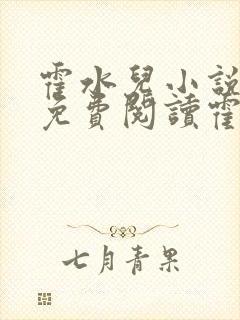 霍水兒小說
免費閱讀霍
七月青果